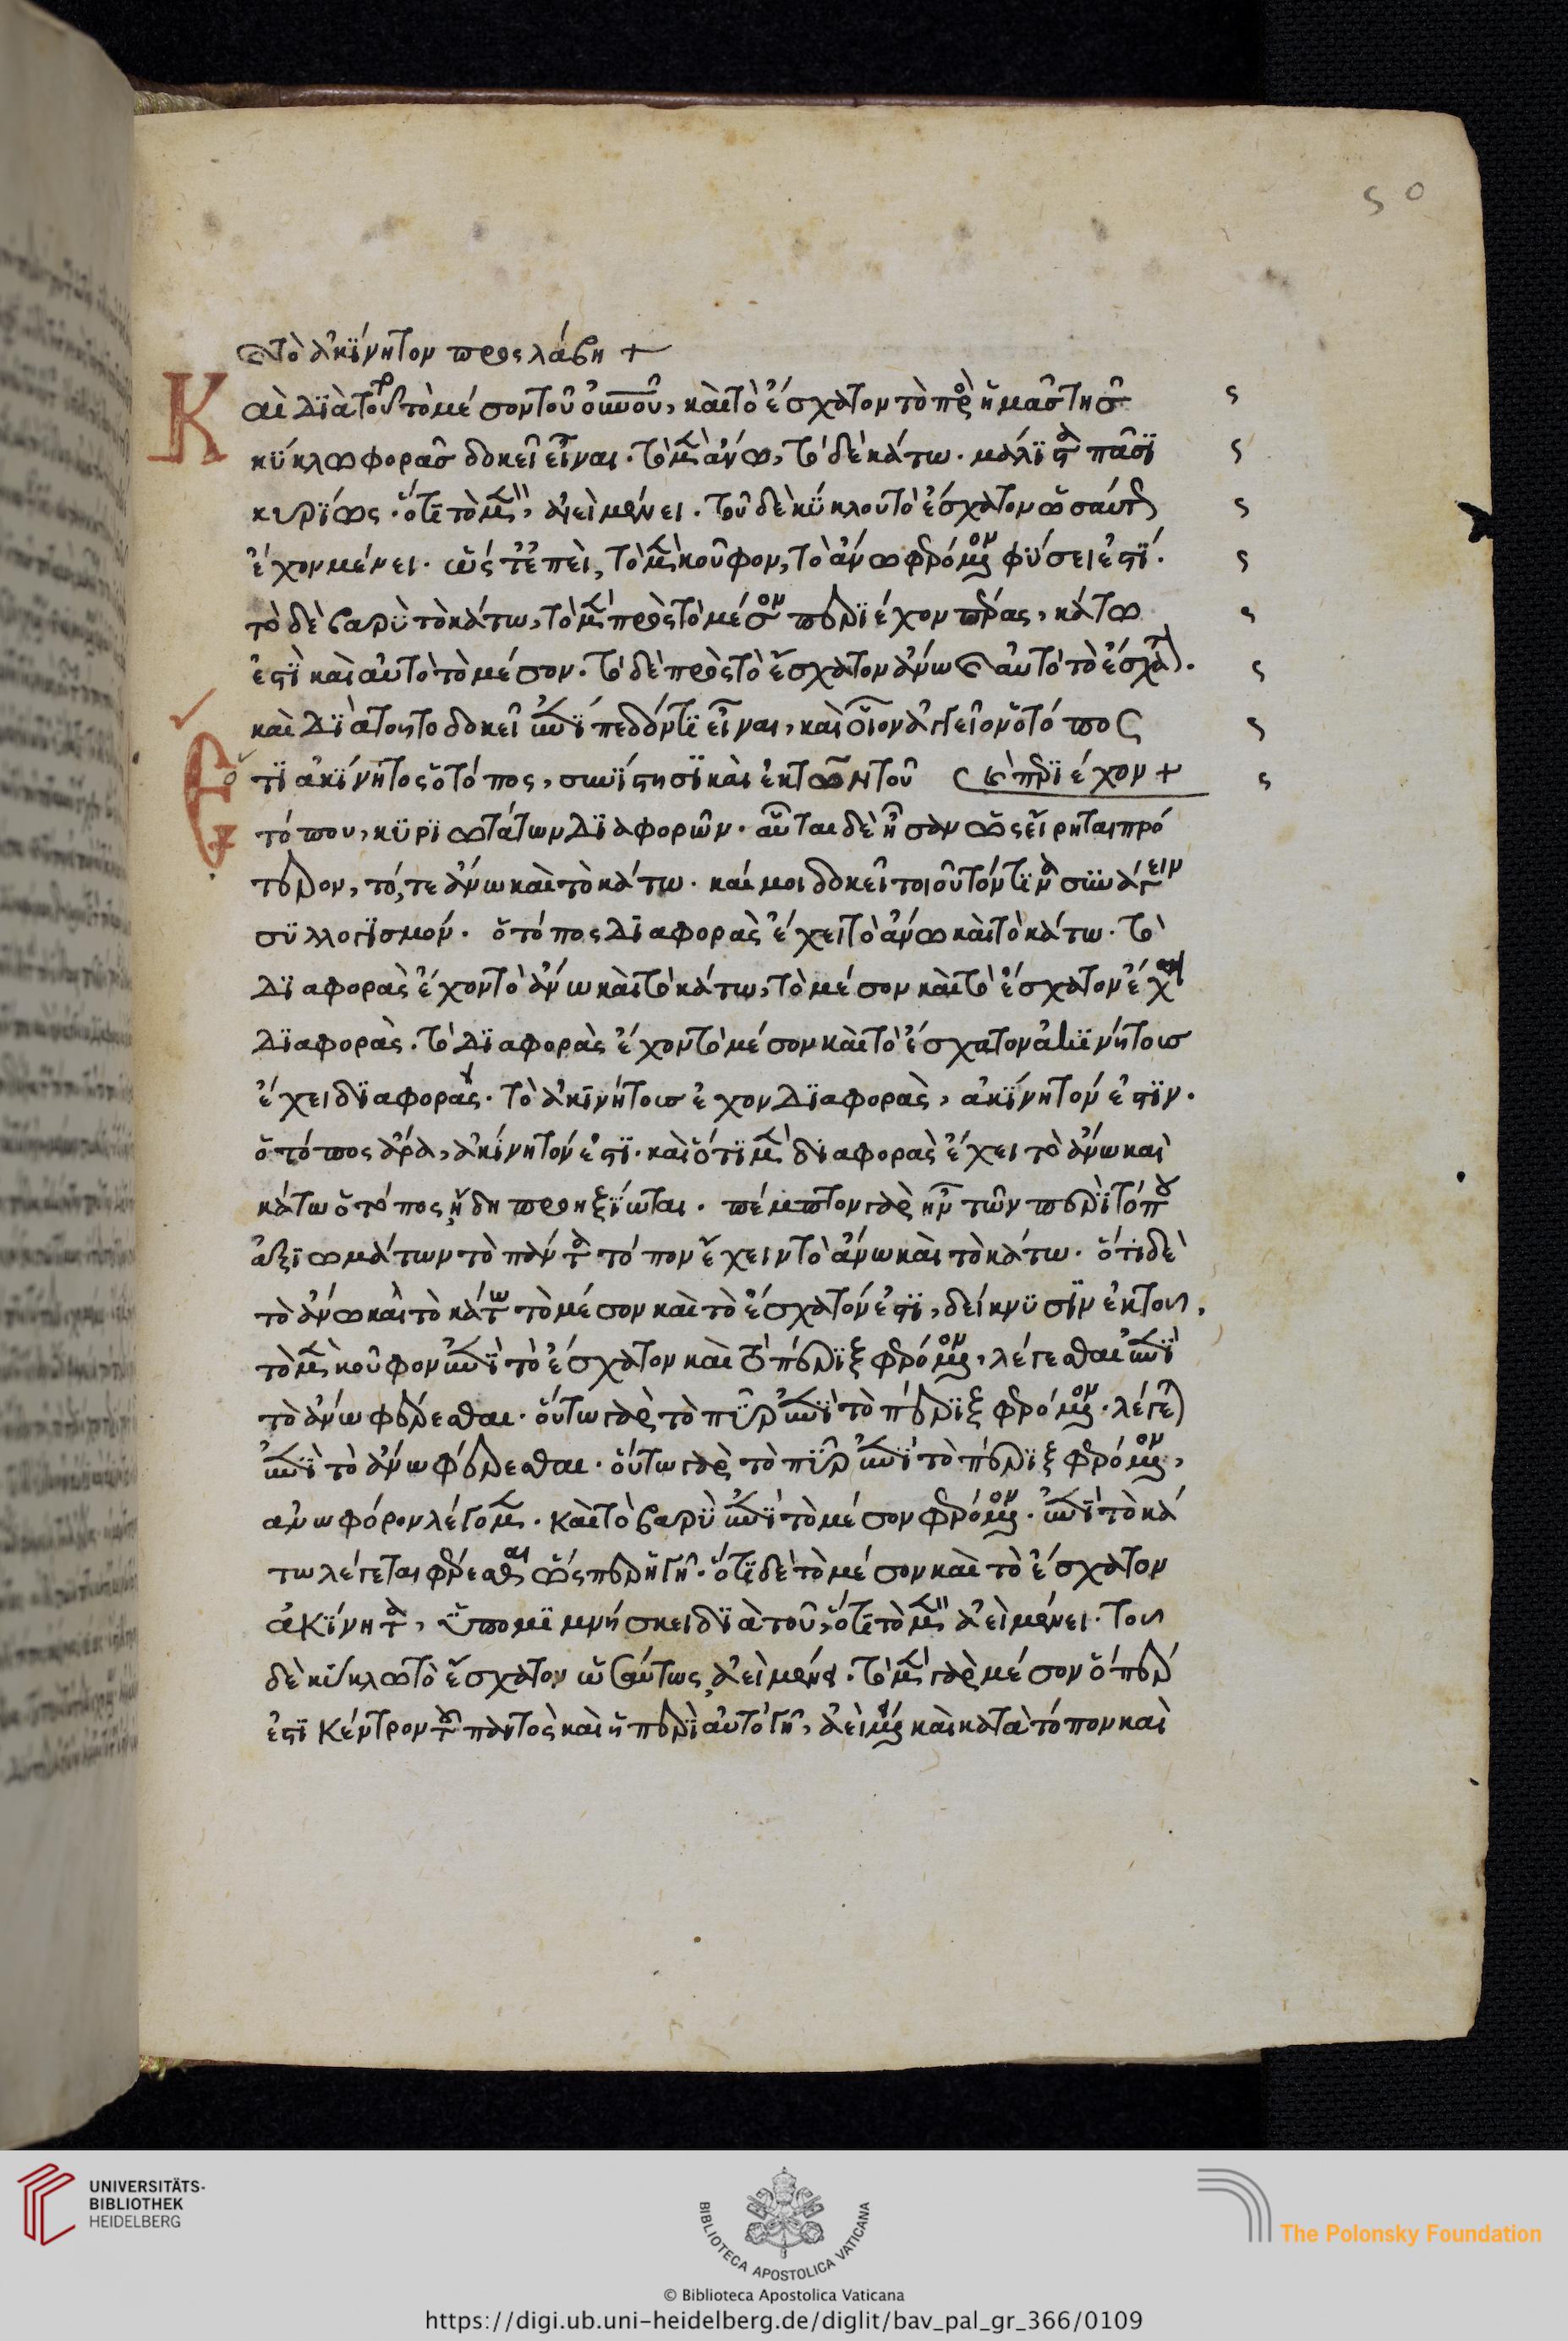 50
τὸ ἀκίνητον προσλάβη +
Καὶ διὰ τοῦτο τὸ μέσον τοῦ οὐνοῦ, καὶ τὸ ἔσχατον τὸ πρὸς ἡμᾶς τῆς
κύκλω φορᾶς δοκεῖ εἶναι. τὸ μὲν ἄνω, τὸ δὲ κάτω. μάλιστα πᾶσι
κυρίως. ὅτι τὸ μὲν, ἀεὶ μένει. τοῦ δὲ κύκλου τὸ ἔσχατον ὡσαύτως
ἔχον μένει. ὥστ' ἐπεὶ, τὸ μὲν κοῦφον, τὸ ἄνω φερόμενον φύσει ἐστί.
τὸ δὲ βαρὺ τὸ κάτω, τὸ μὲν πρὸς τὸ μέσον περιέχον πέρας, κάτω
ἐστὶ καὶ αὐτὸ τὸ μέσον. τὸ δὲ πρὸς τὸ ἔσχατον ἄνω καὶ αὐτὸ τὸ ἔσχατον.
καὶ διὰ τοῦτο δοκεῖ ἐπίπεδόν τι εἶναι, καὶ οἷον ἀγγεῖον ὁ τόπος
Ὅτι ἀκίνητος ὁ τόπος, συνίστησι καὶ ἐκ τῶν τοῦ καὶ περιέχον +
τόπου, κυριωτάτων διαφορῶν. αὗται δὲ ἦσαν ὡς εἴρηται πρό
τερον, τό, τε ἄνω καὶ τὸ κάτω. καί μοι δοκεῖ τοιοῦτόν τινα συνάγειν
συλλογισμόν. ὁ τόπος διαφορὰς ἔχει τὸ ἄνω καὶ τὸ κάτω. τὸ
διαφορὰς ἔχον τὸ ἄνω καὶ τὸ κάτω, τὸ μέσον καὶ τὸ ἔσχατον ἔχει
διαφορὰς. τὸ διαφορὰς ἔχον τὸ μέσον καὶ τὸ ἔσχατον ἀκινήτους
ἔχει διαφοράς. τὸ ἀκινήτους ἔχον διαφορὰς, ἀκίνητόν ἐστιν.
ὁ τόπος ἄρα, ἀκίνητόν ἐστι. καὶ ὅτι μὲν διαφορὰς ἔχει τὸ ἄνω καὶ
κάτω ὁ τόπος, ἤδη προηξίωται. πέμπτον γὰρ ἦν τῶν περὶ τόπου
ἀξιωμάτων τὸ πάντα τόπον ἔχειν τὸ ἄνω καὶ τὸ κάτω. ὅτι δὲ
τὸ ἄνω καὶ τὸ κάτω τὸ μέσον καὶ τὸ ἔσχατόν ἐστι, δείκνυσιν ἐκ τοῦ,
τὸ μὲν κοῦφον ἐπὶ τὸ ἔσχατον καὶ τὸ πέριξ φερόμενον, λέγεσθαι ἐπὶ
τὸ ἄνω φέρεσθαι. οὕτω γὰρ τὸ πῦρ ἐπὶ τὸ πέριξ φερόμενον. λέγεται
ἐπὶ τὸ ἄνω φέρεσθαι. οὕτω γὰρ τὸ πῦρ ἐπὶ τὸ πέριξ φερόμενον,
ἀνωφόρον λέγομεν. καὶ τὸ βαρὺ ἐπὶ τὸ μέσον φερόμενον. ἐπὶ τὸ κά
τω λέγεται φέρεσθαι ὥσπερ ἡ γῆ. ὅτι δὲ τὸ μέσον καὶ τὸ ἔσχατον
ἀκίνητα, ὑπομιμνήσκει διὰ τοῦ, ὅτι τὸ μὲν ἀεὶ μένει. τοῦ
δὲ κύκλω τὸ ἔσχατον ὡσαύτως, ἀεὶ μένει. τὸ μὲν γὰρ μέσον ὅπερ
ἐστὶ κέντρον τοῦ παντὸς καὶ ἡ περὶ αὐτὸ γῆ, ἀεὶ μένει καὶ κατὰ τόπον καὶ
UNIVERSITÄTS-
BIBLIOTHEK
HEIDELBERG
BIBLIOTECA APOSTOLICA VATICANA
The Polonsky Foundation
© Biblioteca Apostolica Vaticana
https://digi.ub.uni-heidelberg.de/diglit/bav_pal_gr_366/0109